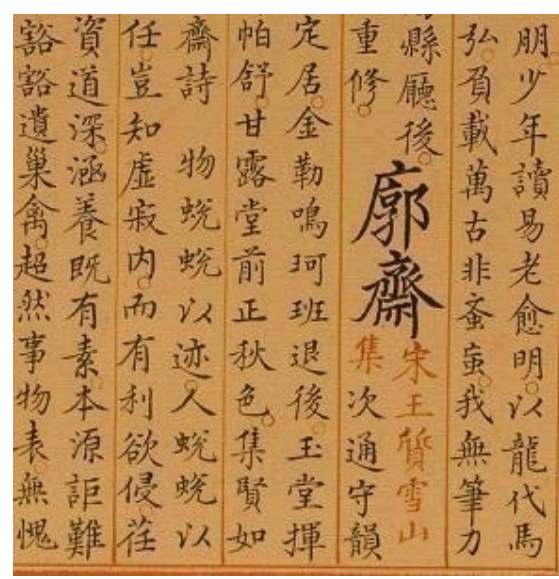 朋少年讀易老愈明以龍代馬
弘負載萬古非蚤䖟我無筆力
縣廳後
重修
廓齋
宋王質雪山
集次通守韻
定居金勒鳴珂班退後玉堂揮
帕舒甘露堂前正秋色集賢如
齋詩 物蛻蛻以迹人蛻蛻以
任豈知虛寂内而有利欲侵荏
資道深涵養既有素本源詎難
豁豁遺巢禽超然事物表無愧